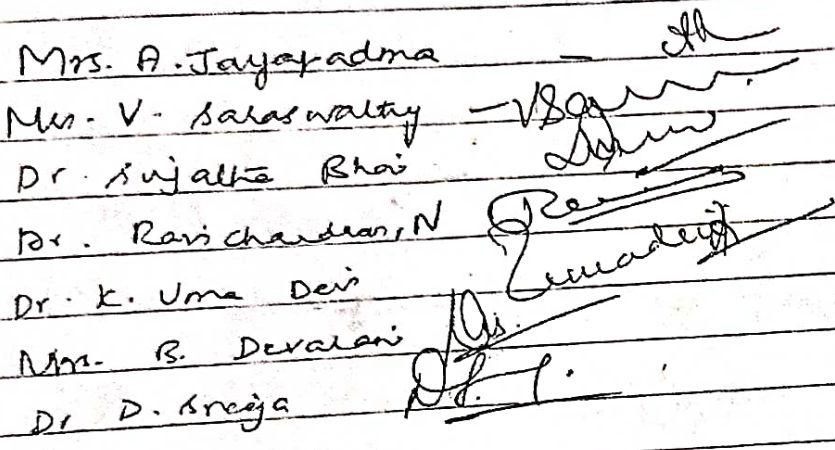 Mrs. A. Jayapadma -
Mrs. V. Saraswathy - VSa
Dr. Sujatha Bhai
Dr. Ravichandran, N
Dr. K. Uma Devi Kumadevi
Mrs. B. Devarani
Dr D. Sreeja